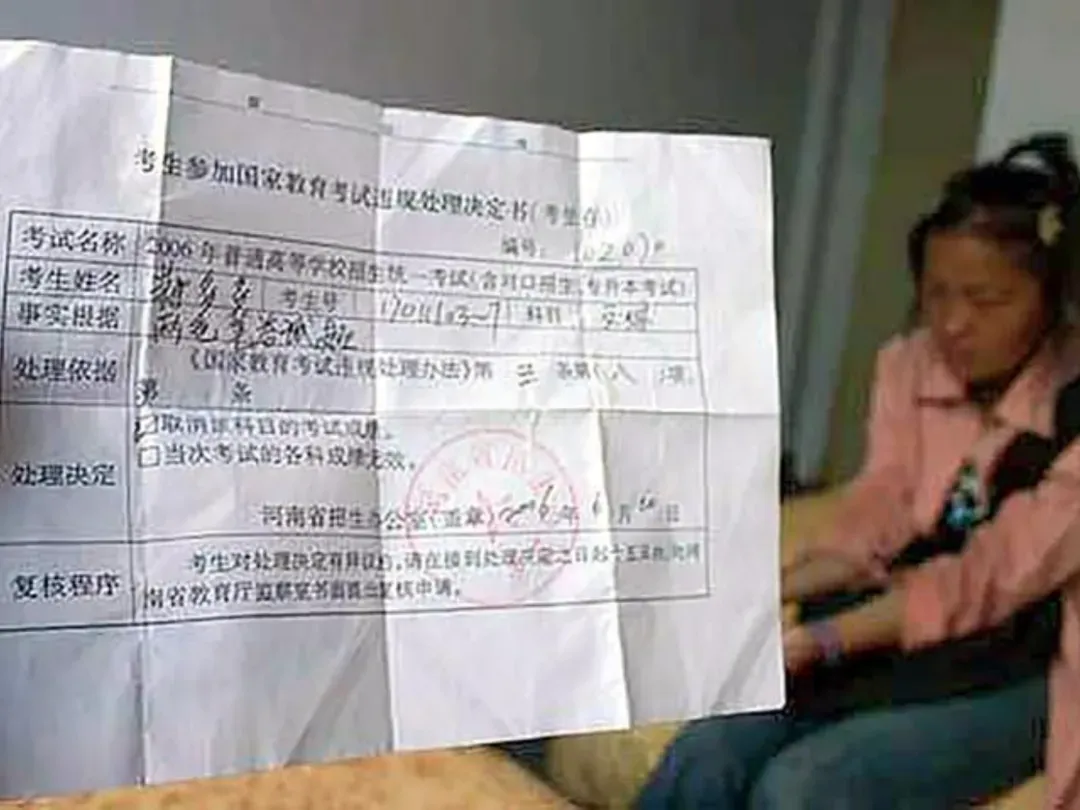 考生参加国家教育考试违规处理决定书(考生存)
编号:
考试名称 2006年普通高等学校招生统一考试(含对口招生、专升本考试)
考生姓名 考生号 科目
事实根据 两色笔答
处理依据 《国家教育考试违规处理办法》第 三 条第(八)项。
第 条
处理决定 取消该科目的考试成绩。
□当次考试的各科成绩无效。
河南省招生办公室(盖章) 2006年 6月 日
复核程序 考生对处理决定有异议的,请在接到处理决定之日起十五天内,向河
南省教育厅监察室书面提出复核申请。